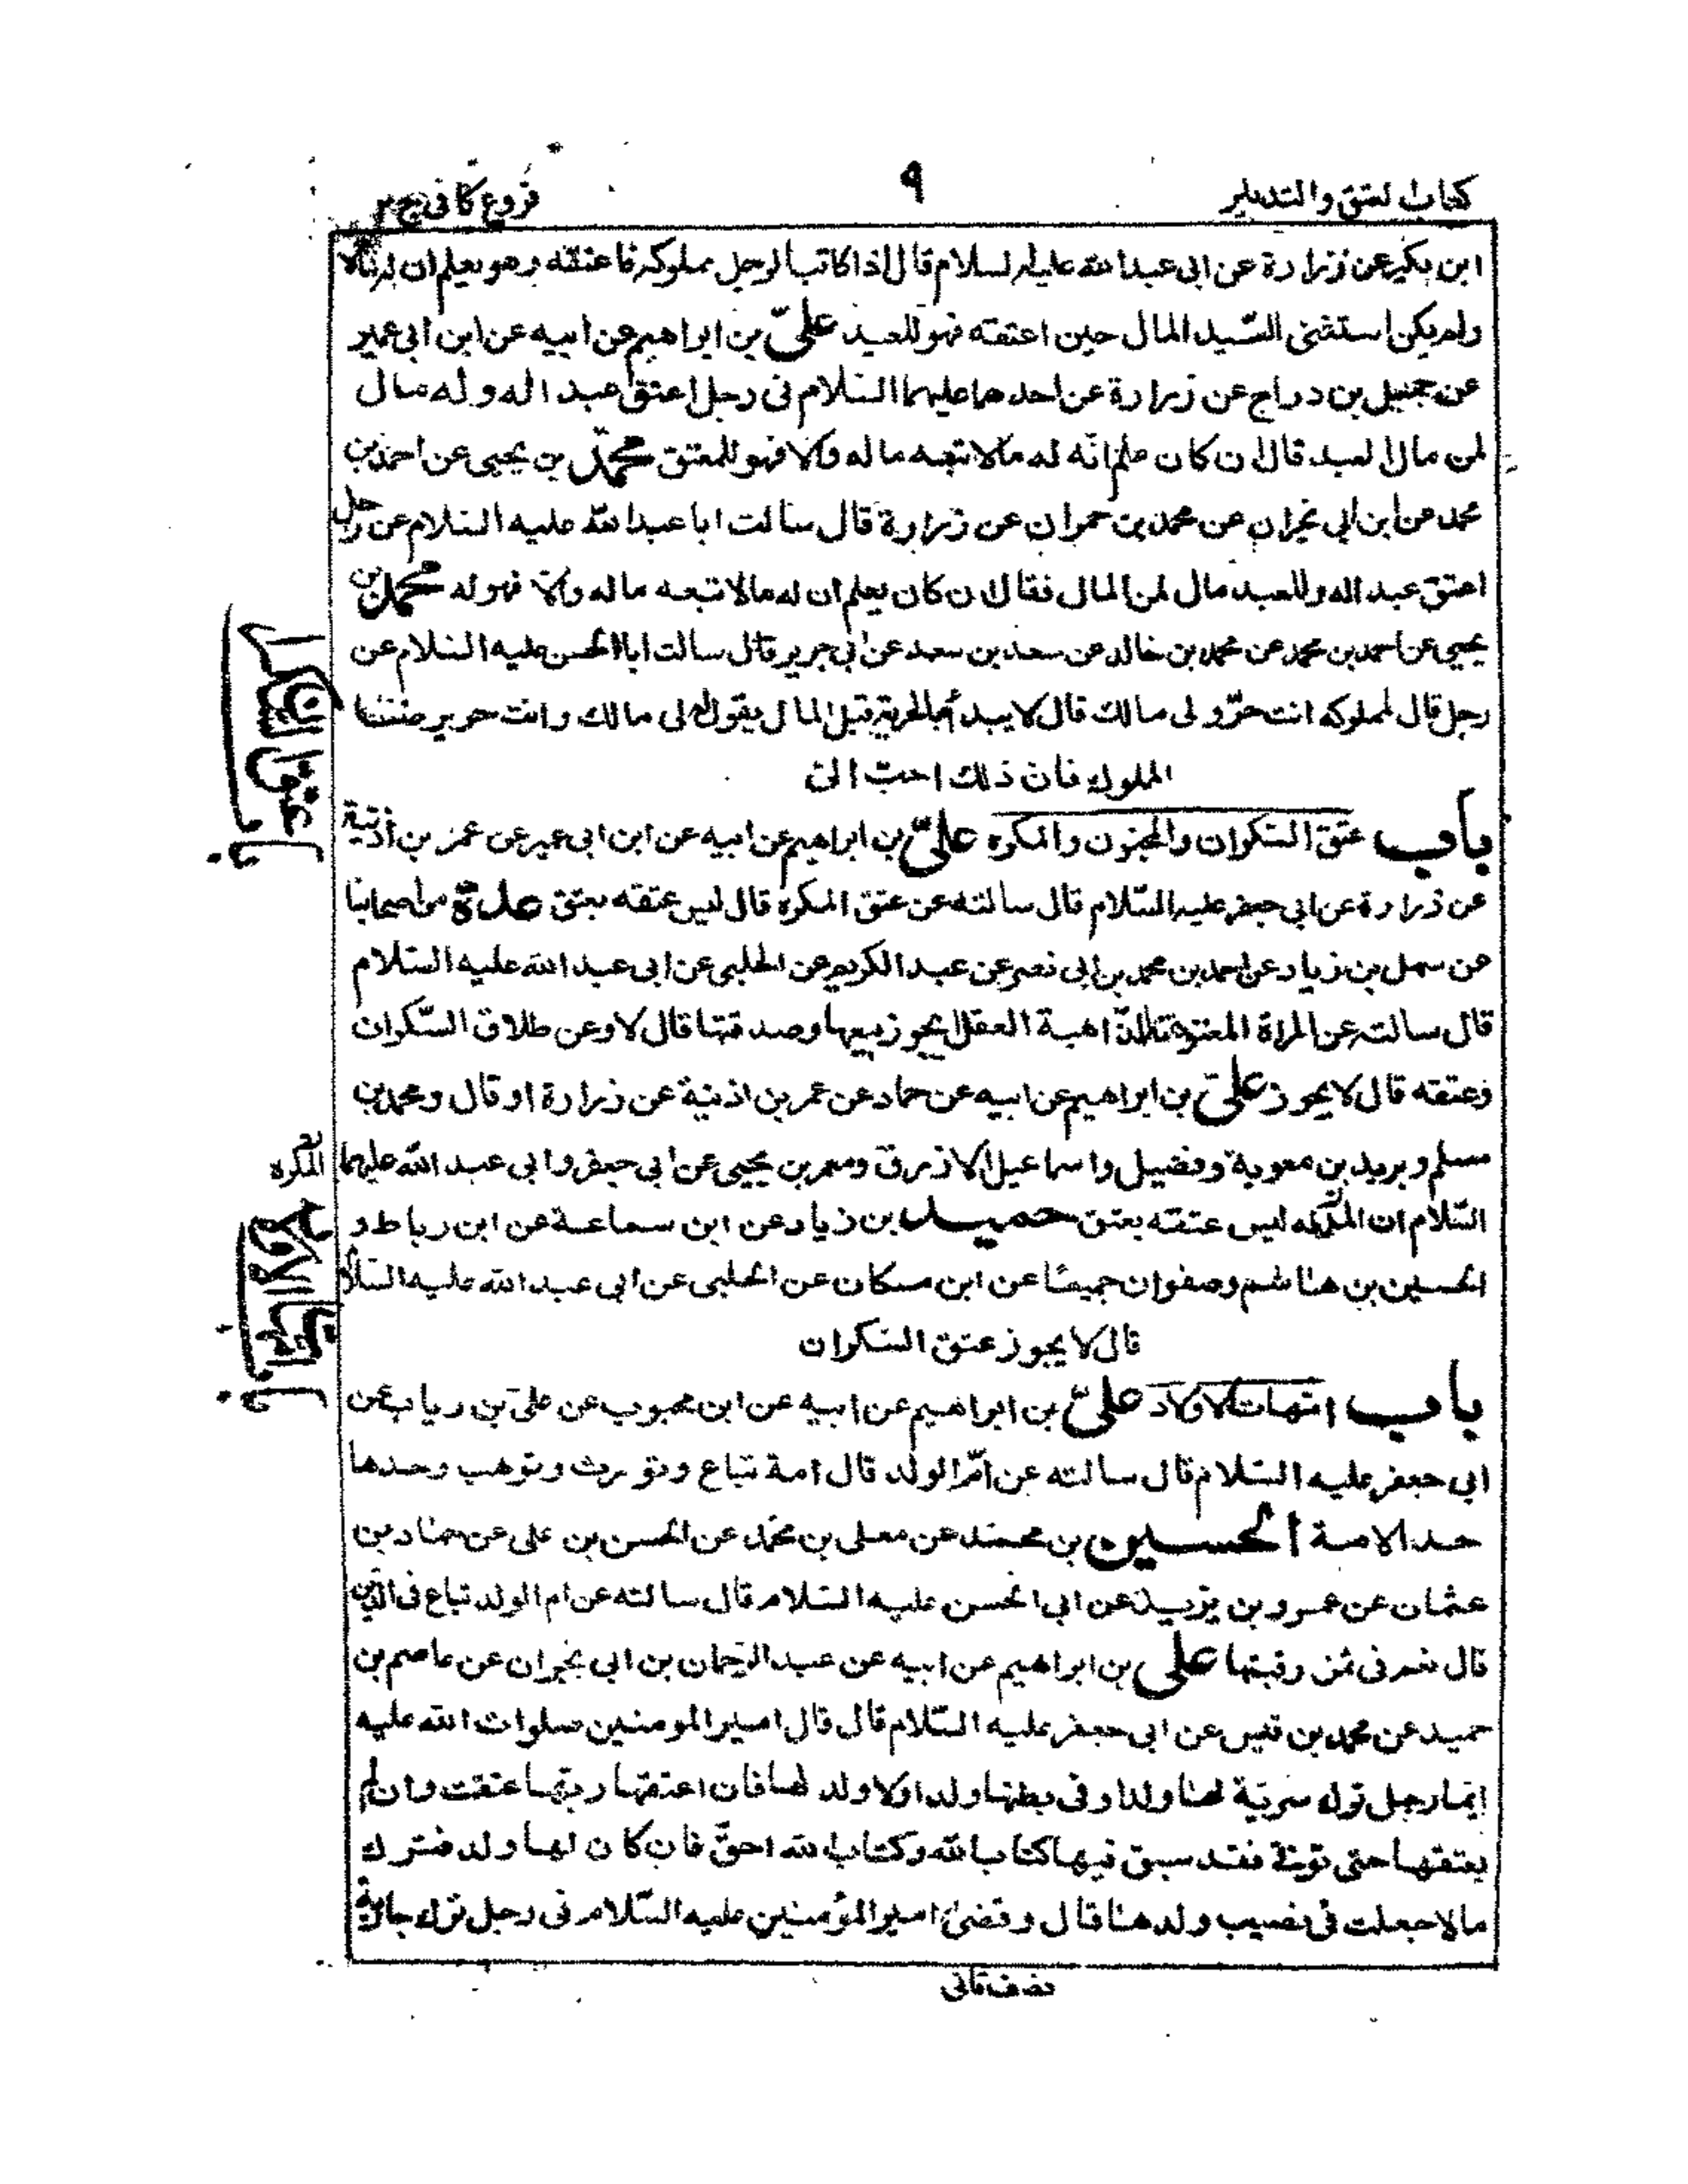 كتاب العتق والتدبير
٩
فروع كافى ج ٣
ابن بكير عن زرارة عن ابى عبد الله عليه السلام قال اذا كاتب الرجل مملوكه فاعتقه وهو يعلم ان له مالا
ولم يكن استثنى السّيد المال حين اعتقه فهو للعبد علىّ بن ابراهيم عن ابيه عن ابن ابى عمير
عن جميل بن دراج عن زرارة عن احدهما عليهما السّلام فى رجل اعتق عبدا له وله مال
لمن مال العبد قال ان كان علم انّه له مالا تبعه ماله والا فهو للمعتق محمّد بن يحيى عن احمد بن
محمد عن ابن ابى نجران عن محمد بن حمران عن زرارة قال سالت ابا عبد الله عليه السّلام عن رجل
اعتق عبدا له وللعبد مال لمن المال فقال ان كان يعلم ان له مالا تبعه ماله والّا فهو له محمد بن
يحيى عن احمد بن محمد عن محمد بن خالد عن سعد بن سعد عن ابى جرير قال سالت ابا الحسن عليه السّلام عن
رجل قال لمملوكه انت حرّ ولى مالك قال لا يبدأ بالحرية قبل المال يقول لى مالك وانت حر برضى
المملوك فان ذلك احبّ الىّ
باب عتق السّكران والمجنون والمكره علىّ بن ابراهيم عن ابيه عن ابن ابى عمير عن عمر بن أذنية
عن زرارة عن ابى جعفر عليه السّلام قال سالته عن عتق المكره قال ليس عتقه بعتق عدّة من اصحابنا
عن سهل بن زياد عن احمد بن محمد بن ابى نصر عن عبد الكريم عن الحلبى عن ابى عبد الله عليه السّلام
قال سالته عن المراة المعتوهة الذّاهبة العقل ايجوز بيعها وصدقتها قال لا وعن طلاق السّكران
وعتقه قال لا يجوز علىّ بن ابراهيم عن ابيه عن حماد عن عمر بن اذنية عن زرارة او قال ومحمد بن
مسلم وبريد بن معوية وفضيل واسماعيل الازرق ومعمر بن يحيى عن ابى جعفر وابى عبد الله عليهما
السّلام ان المدله ليس عتقه بعتق حميد بن زياد عن ابن سماعة عن ابن رباط و
الحسين بن هاشم وصفوان جميعًا عن ابن مسكان عن الحلبى عن ابى عبد الله عليه السّلام
قال لا يجوز عتق السّكران
باب امّهات الاولاد علىّ بن ابراهيم عن ابيه عن ابن محبوب عن علىّ بن رياب عن
ابى جعفر عليه السّلام قال سالته عن امّ الولد قال امة تباع وتورث وتوهب وحدها
حد الامة الحسين بن محمّد عن معلى بن محمّد عن الحسن بن على عن حمّاد بن
عثمان عن عمرو بن يزيد عن ابى الحسن عليه السّلام قال سالته عن ام الولد تباع فى الدّين
قال نعم فى ثمن رقبتها على بن ابراهيم عن ابيه عن عبد الرّحمان بن ابى نجران عن عاصم بن
حميد عن محمد بن قيس عن ابى جعفر عليه السّلام قال قال امير المومنين صلوات الله عليه
ايّما رجل ترك سريّة لها ولد او فى بطنها ولد او لا ولد لها فان اعتقها ربّها عتقت وان لم
يعتقها حتى توفّى فقد سبق فيها كتاب الله وكتاب الله احقّ فان كان لها ولد فترك
مالا جعلت فى نصيب ولدها قال وقضى امير المؤمنين عليه السّلام فى رجل ترك جارية
باب عتق السّكران
المكره
باب امهات الاولاد
نصف ثانى